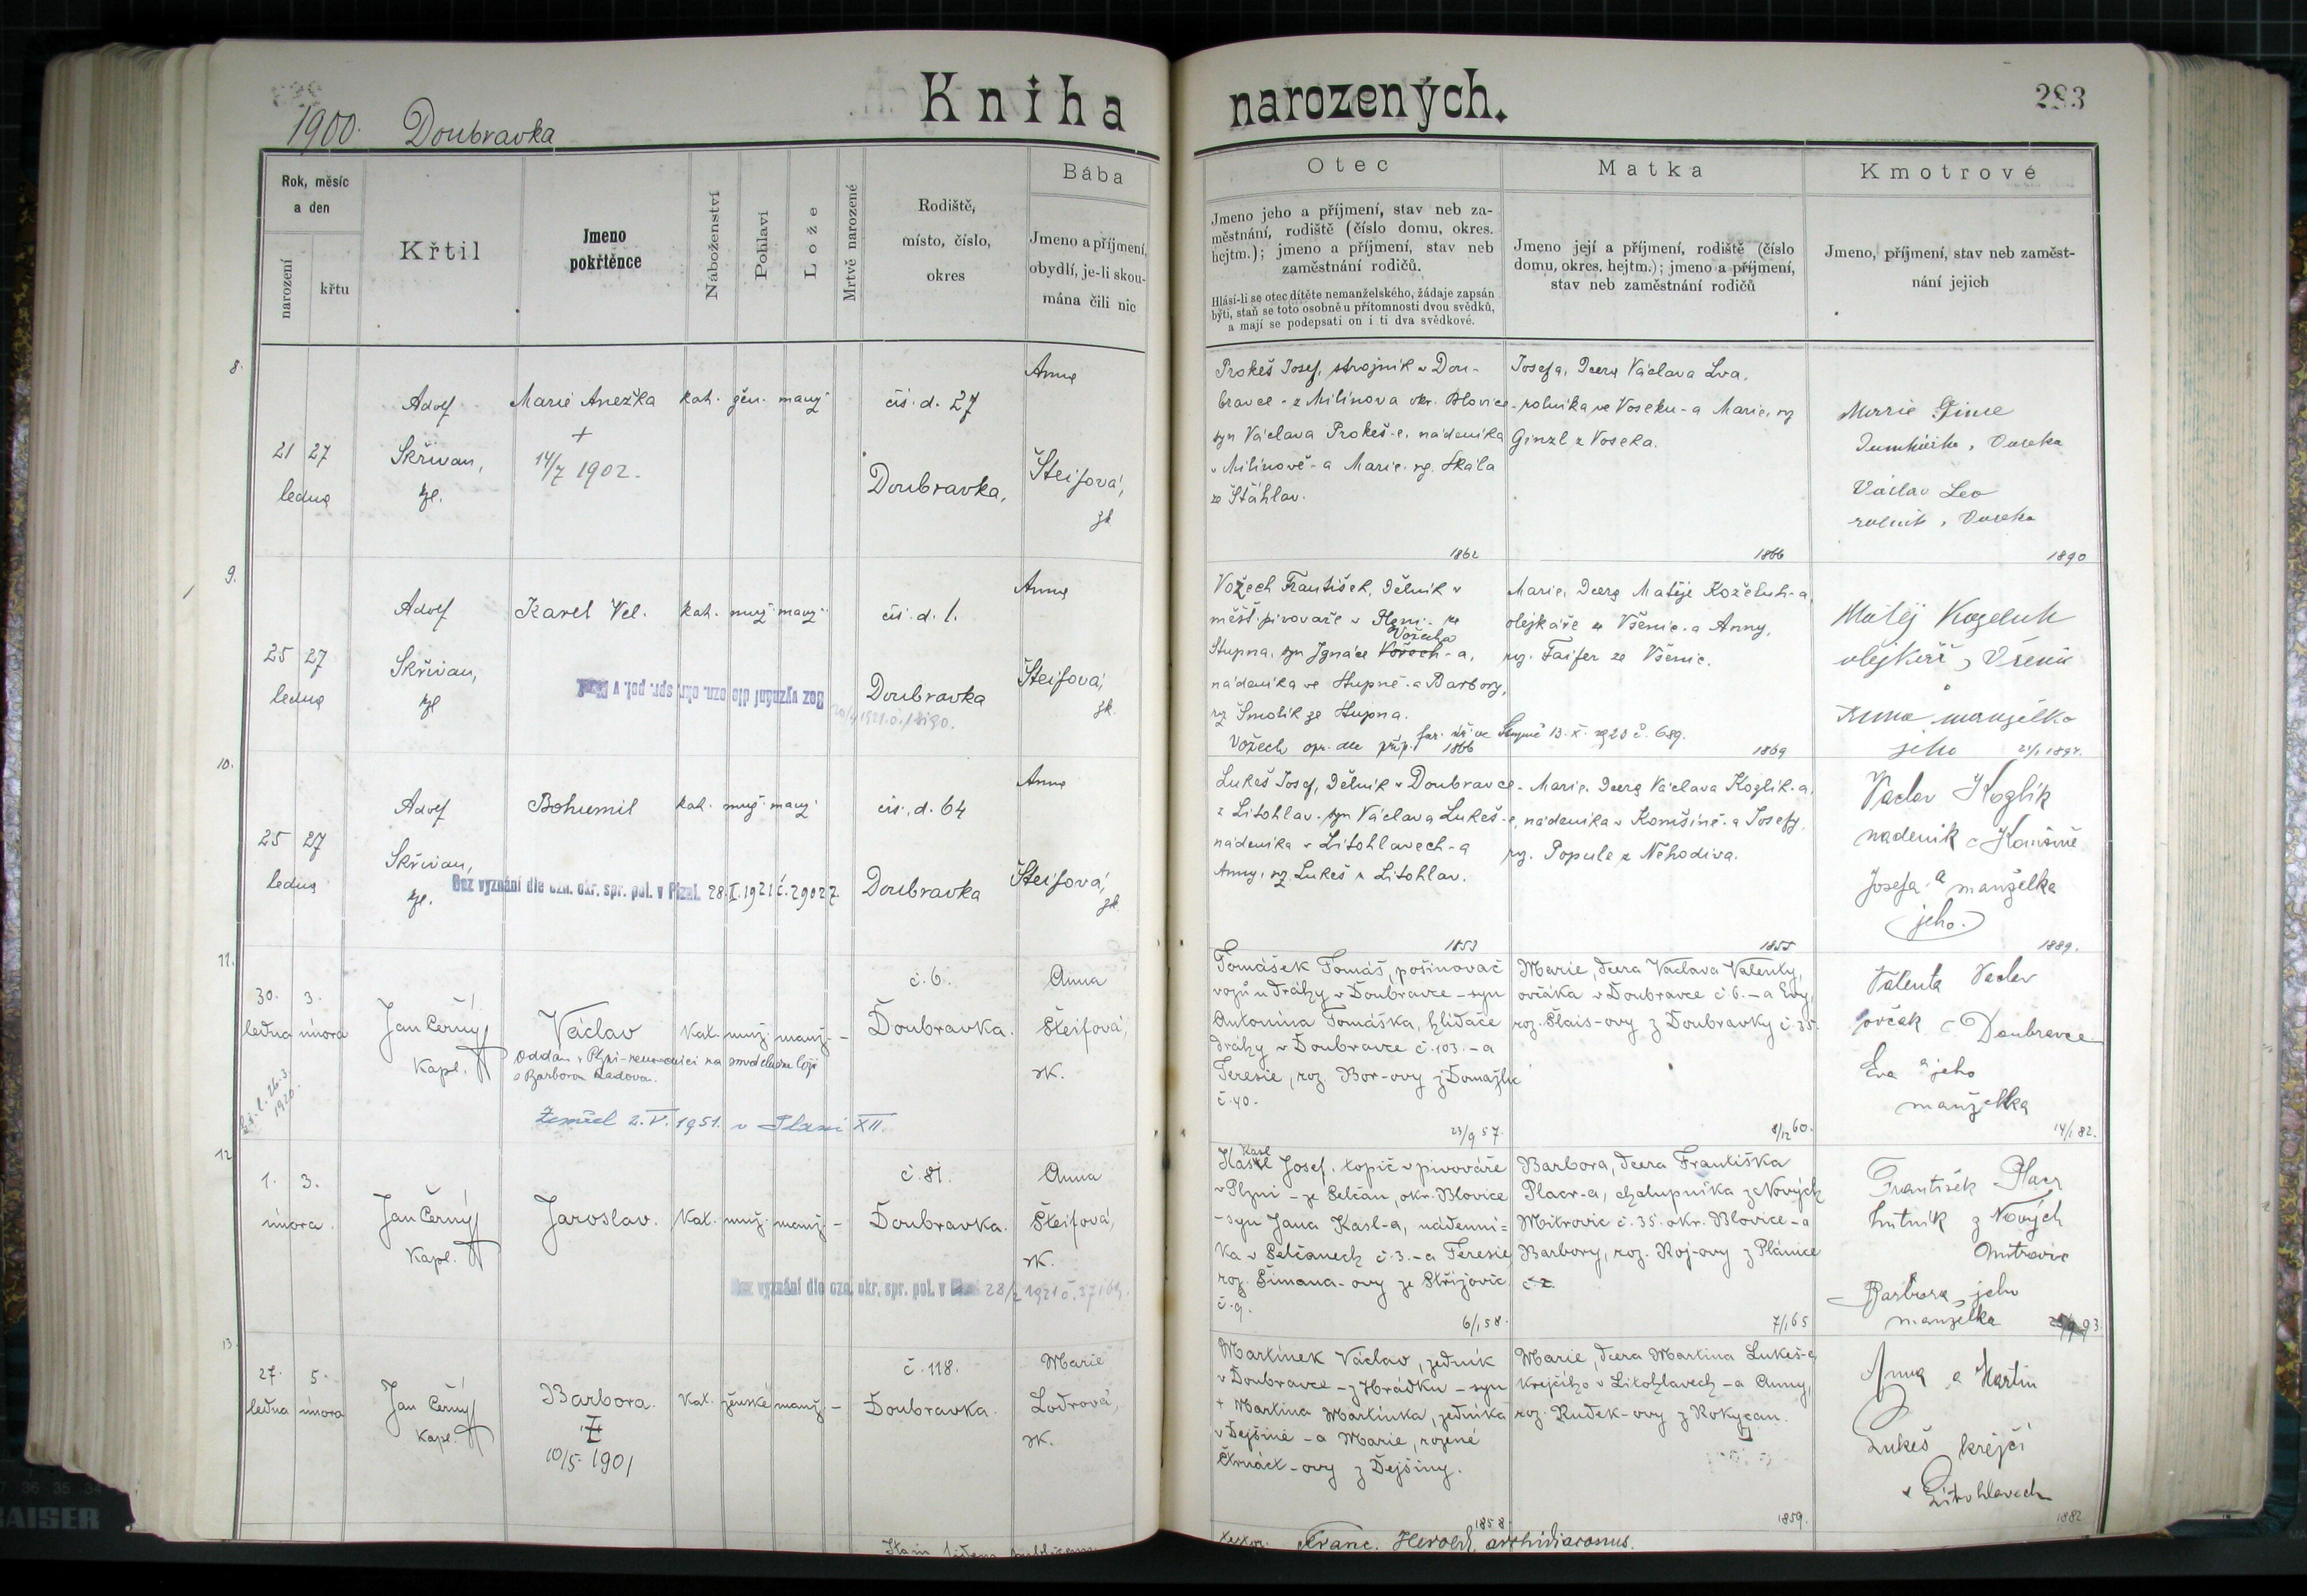 Kniha narozených.
283
1900. Doubravka
Rok, měsíc
a den
narození
křtu
Křtil
Jmeno
pokřtěnce
Náboženství
Pohlaví
Lože
Mrtvě narozené
Rodiště,
místo, číslo,
okres
Bába
Jmeno a příjmení,
obydlí, je-li skou-
mána čili nic
Otec
Jmeno jeho a příjmení, stav neb za-
městnání, rodiště (číslo domu, okres.
hejtm.); jmeno a příjmení, stav neb
zaměstnání rodičů.
Hlásí-li se otec dítěte nemanželského, žádaje zapsán
býti, staň se toto osobně u přítomnosti dvou svědků,
a mají se podepsati on i ti dva svědkové.
Matka
Jmeno její a příjmení, rodiště (číslo
domu, okres. hejtm.); jmeno a příjmení,
stav neb zaměstnání rodičů
Kmotrové
Jmeno, příjmení, stav neb zaměst-
nání jejich
8.
21 27
ledna
Adolf
Skřivan,
kpl.
Marie Anežka
+
14/7 1902.
kat. žen. manž.
čís. d. 27
Doubravka,
Anna
Šteifová,
zk.
Prokeš Josef, strojník v Dou-
bravce - z Milínova okr. Blovice -
syn Václava Prokeš-e, nádeníka
v Milínově - a Marie, roz. Skála
ze Šťáhlav.
1862
Josefa, dcera Václava Lva,
rolníka ve Voseku - a Marie, roz.
Ginzl z Voseka.
1866
Marie
Václav Leo
rolník, Voseka
1890
9.
25 27
ledna
Adolf
Skřivan,
kpl.
Karel Vel.
kat. muž. manž.
Bez vyznání dle ozn. okr. spr. pol. v Plzni
čís. d. 1.
Doubravka
Anna
Šteifová,
zk.
Vožech František, dělník v
měšť. pivováře v Plzni - ze
Stupna, syn Ignáce Vořech-a, Vožecha
nádeníka ve Stupně - a Barbory,
roz. Smolík ze Stupna.
Vožech opr. dle příp. far. úř. ve Stupně 13. X. 1923 č. 689.
1866
Marie, dcera Matěje Koželuh-a,
olejkáře ze Všenic - a Anny,
roz. Faifer ze Všenic.
1869
Matěj Kozeluh
olejkář, Všenic
a
Anna manželka
jeho
10.
25 27
ledna
Adolf
Skřivan,
kpl.
Bohumil
kat. muž. manž.
Bez vyznání dle ozn. okr. spr. pol. v Plzni. 28.I.1921 č. 29027.
čís. d. 64
Doubravka
Anna
Šteifová,
zk.
Lukeš Josef, dělník v Doubravce -
z Litohlav - syn Václava Lukeš-e,
nádeníka v Litohlavech - a
Anny, roz. Lukeš z Litohlav.
1853
Marie, dcera Václava Koglík-a,
nádeníka v Komšíně - a Josefy,
roz. Popule z Nehodiva.
1855
Václav Koglík
nádeník v Komšíně
a
Josefa manželka
jeho.
1889.
11.
30. 3.
ledna února
Jan Černý
Kapl.
Václav
Kat. muž. manž. -
Zemřel 2. V. 1951. v Plzni XII.
č. 6.
Doubravka.
Anna
Šteifová,
zk.
Tomášek Tomáš, pošinovač
vozů u dráhy v Doubravce - syn
Antonína Tomáška, hlídače
dráhy v Doubravce č. 103. - a
Teresie, roz. Bor-ovy z Domažlic
č. 40.
23/9 57.
Marie, dcera Václava Valenty,
ovčáka v Doubravce č 6. - a Evy,
roz. Šlais-ovy z Doubravky č. 35.
8/12 60.
Valenta Václav
ovčák v Doubravce
Eva a jeho
manželka
14/1 82.
12.
1. 3.
února.
Jan Černý
Kapl.
Jaroslav.
Kat. muž. manž. -
Bez vyznání dle ozn. okr. spr. pol. v Plzni
č. 81.
Doubravka.
Anna
Šteifová,
zk.
Kasl
Josef, topič v pivováře
v Plzni - ze Selčan, okr. Blovice
- syn Jana Kasl-a, nádenní=
ka v Selčanech č. 3. - a Teresie,
roz. Šimana-ovy ze Střížovic
č. 9.
6/1 58.
Barbora, dcera Františka
Placr-a, chalupníka z Nových
Mitrovic č. 35. okr. Blovice - a
Barbory, roz. Roj-ovy z Plánice
č. 2.
7/1 65
František Placr
hutník z Nových
Mitrovic
Barbora jeho
manželka
13.
27. 5.
ledna února
Jan Černý
Kapl.
Barbora.
10/5. 1901
Kat. ženské manž. -
č. 118.
Doubravka.
Marie
Lodrová,
zk.
Martínek Václav, zedník
v Doubravce - z Hrádku - syn
+ Martina Martínka, zedníka
v Dejšině - a Marie, rozené
Čtrnáct-ovy z Dejšiny.
1858.
Marie, dcera Martina Lukeš-e,
krejčího v Litohlavech - a Anny,
roz. Rudek-ovy z Rokycan.
1859.
Anna a Martin
Lukeš krejčí
v Litohlavech
1882
Franc. Herold, archidiaconus.